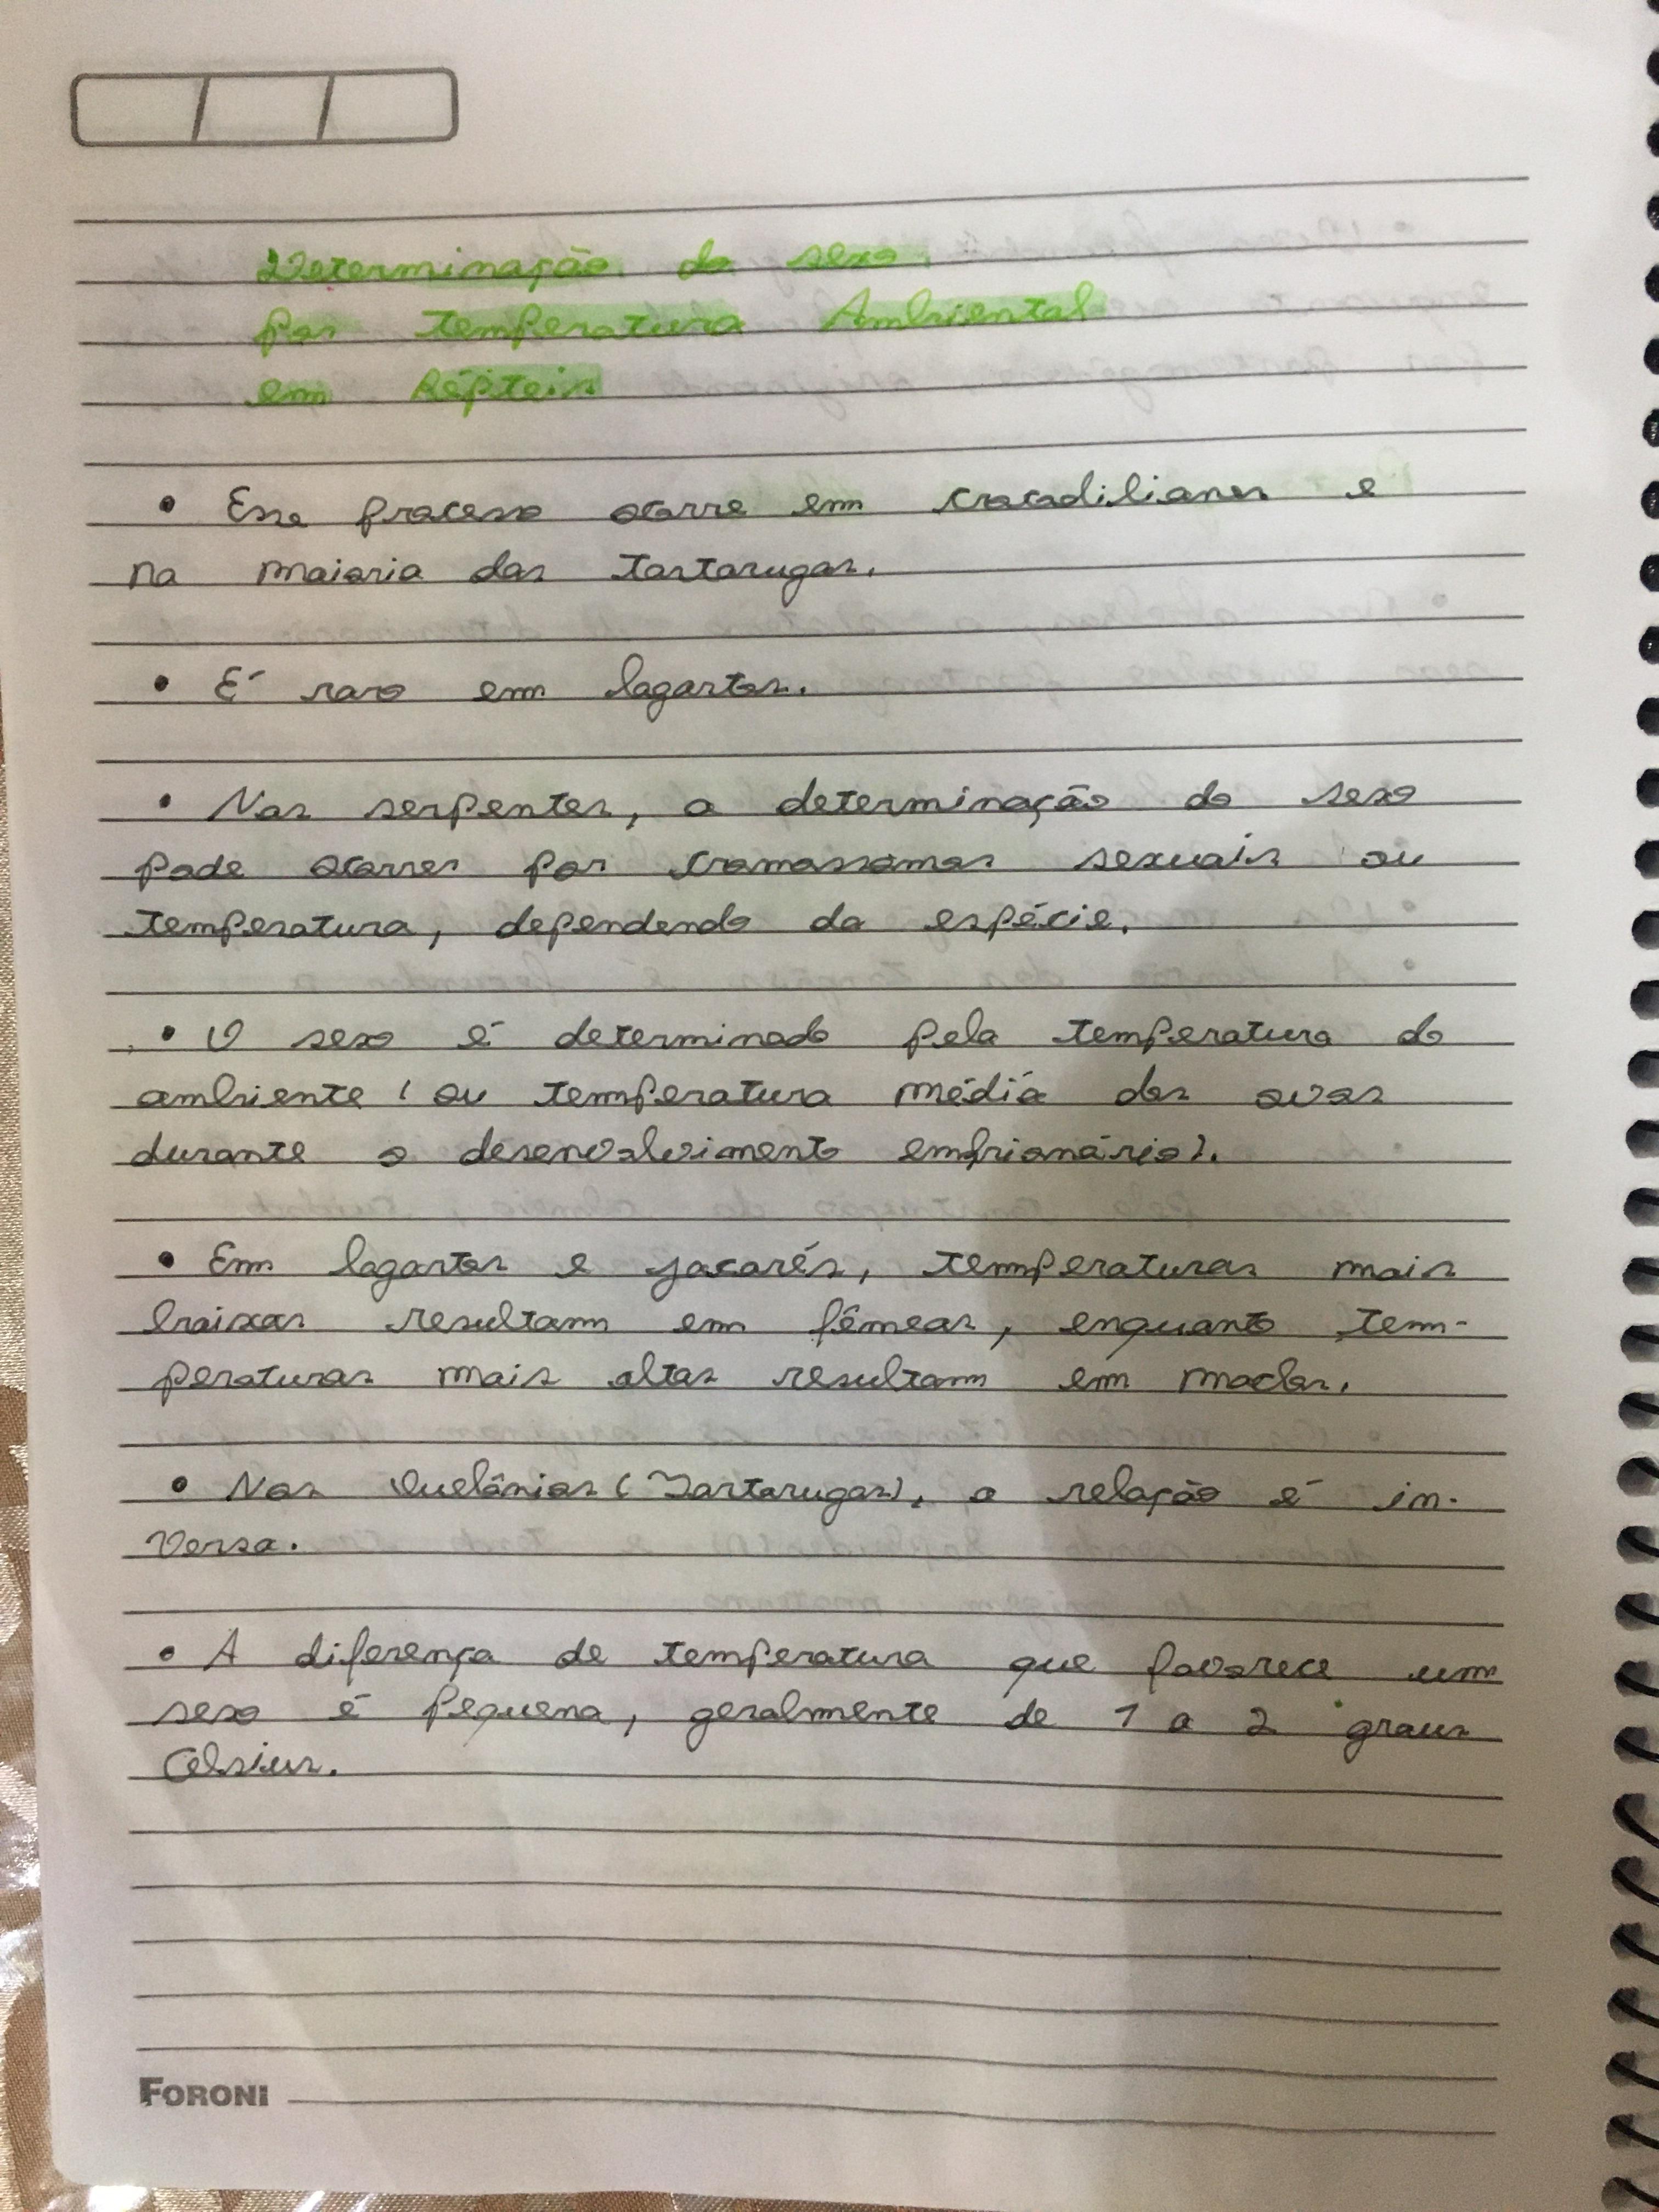 Determinação do sexo
por temperatura Ambiental
em Répteis
• Esse processo ocorre em crocodilianos e
na maioria das tartarugas.
• É raro em lagartos.
• Nas serpentes, a determinação do sexo
pode ocorrer por cromossomos sexuais ou
temperatura, dependendo da espécie.
• O sexo é determinado pela temperatura do
ambiente (ou temperatura média dos ovos
durante o desenvolvimento embrionário).
• Em lagartos e jacarés, temperaturas mais
baixas resultam em fêmeas, enquanto tem-
peraturas mais altas resultam em machos.
• Nos Quelônios (Tartarugas), a relação é in-
versa.
• A diferença de temperatura que favorece um
sexo é pequena, geralmente de 1 a 2 graus
Celsius.
FORONI